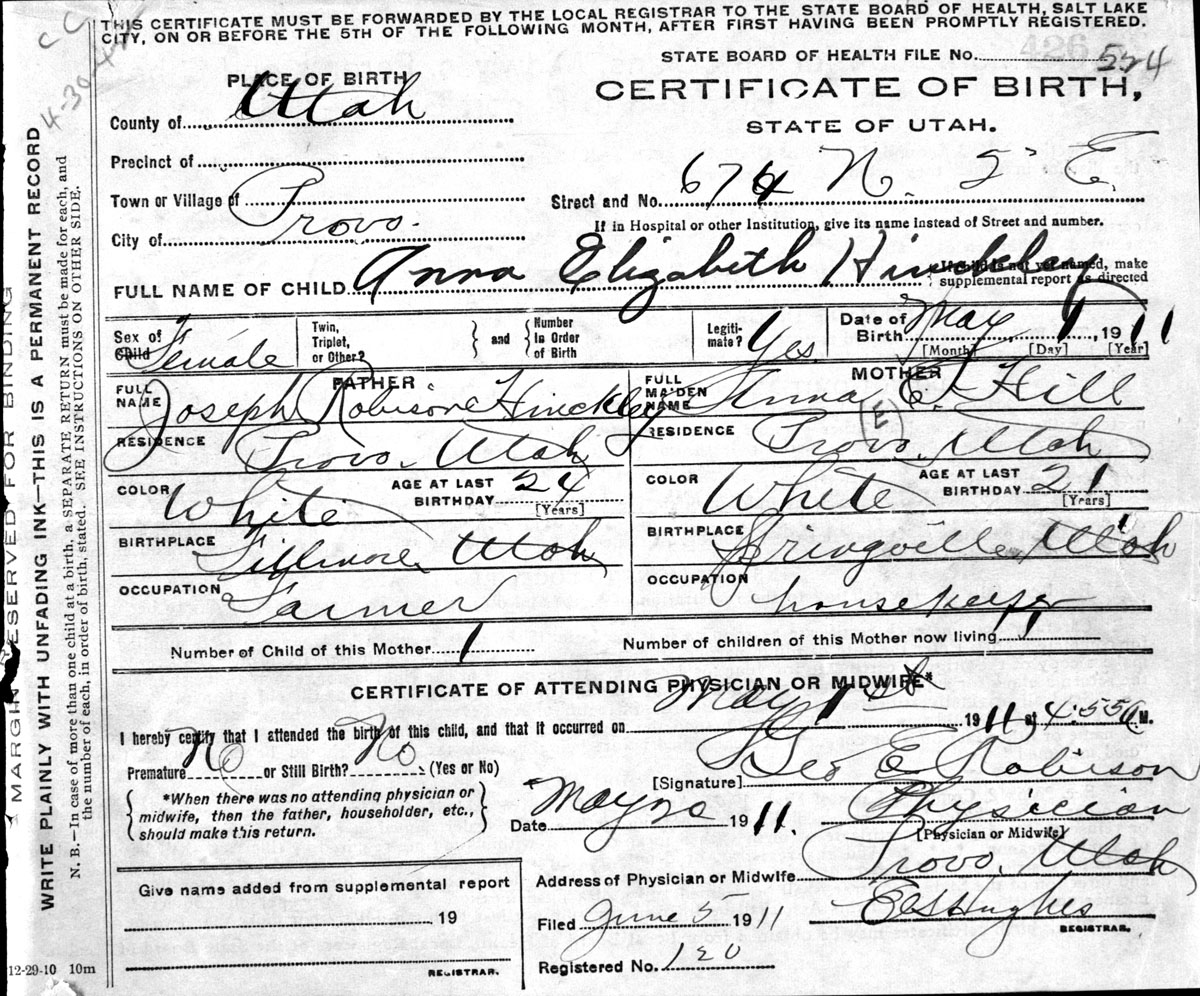 THIS CERTIFICATE MUST BE FORWARDED BY THE LOCAL REGISTRAR TO THE STATE BOARD OF HEALTH, SALT LAKE
CITY, ON OR BEFORE THE 5TH OF THE FOLLOWING MONTH, AFTER FIRST HAVING BEEN PROMPTLY REGISTERED.
STATE BOARD OF HEALTH FILE No. 524
PLACE OF BIRTH
CERTIFICATE OF BIRTH,
STATE OF UTAH.
County of Utah
Precinct of
Town or Village of
Street and No. 674 N. 5 E.
If in Hospital or other Institution, give its name Instead of Street and number.
City of Provo.
FULL NAME OF CHILD Anna Elizabeth Hinckley
If child is not yet named, make
supplemental report as directed
Sex of Child Female
Twin, Triplet, or Other?
and
Number In Order of Birth
Legiti-mate? Yes
Date of Birth May 1, 1911
[Month] [Day] [Year]
FATHER
MOTHER
FULL NAME Joseph Robison Hinckley
FULL MAIDEN NAME Anna E. Hill
RESIDENCE Provo, Utah
RESIDENCE Provo, Utah
COLOR White AGE AT LAST BIRTHDAY 24 [Years]
COLOR White AGE AT LAST BIRTHDAY 21 [Years]
BIRTHPLACE Fillmore, Utah
BIRTHPLACE Springville, Utah
OCCUPATION Farmer
OCCUPATION housekeeper
Number of Child of this Mother 1
Number of children of this Mother now living 1
CERTIFICATE OF ATTENDING PHYSICIAN OR MIDWIFE*
I hereby certify that I attended the birth of this child, and that it occurred on May 1st 1911, at 4:55 A.M.
Premature No or Still Birth? No (Yes or No)
[Signature] Geo E Robison
*When there was no attending physician or
midwife, then the father, householder, etc.,
should make this return.
Date May 1911.
Physician
[Physician or Midwife]
Address of Physician or Midwife Provo, Utah
Give name added from supplemental report
19
REGISTRAR.
Filed June 5 1911
Hughes
REGISTRAR.
Registered No. 120
12-29-10 10m
MARGIN RESERVED FOR BINDING
WRITE PLAINLY WITH UNFADING INK—THIS IS A PERMANENT RECORD
N. B.—In case of more than one child at a birth, a SEPARATE RETURN must be made for each, and
the number of each, in order of birth, stated. SEE INSTRUCTIONS ON OTHER SIDE.